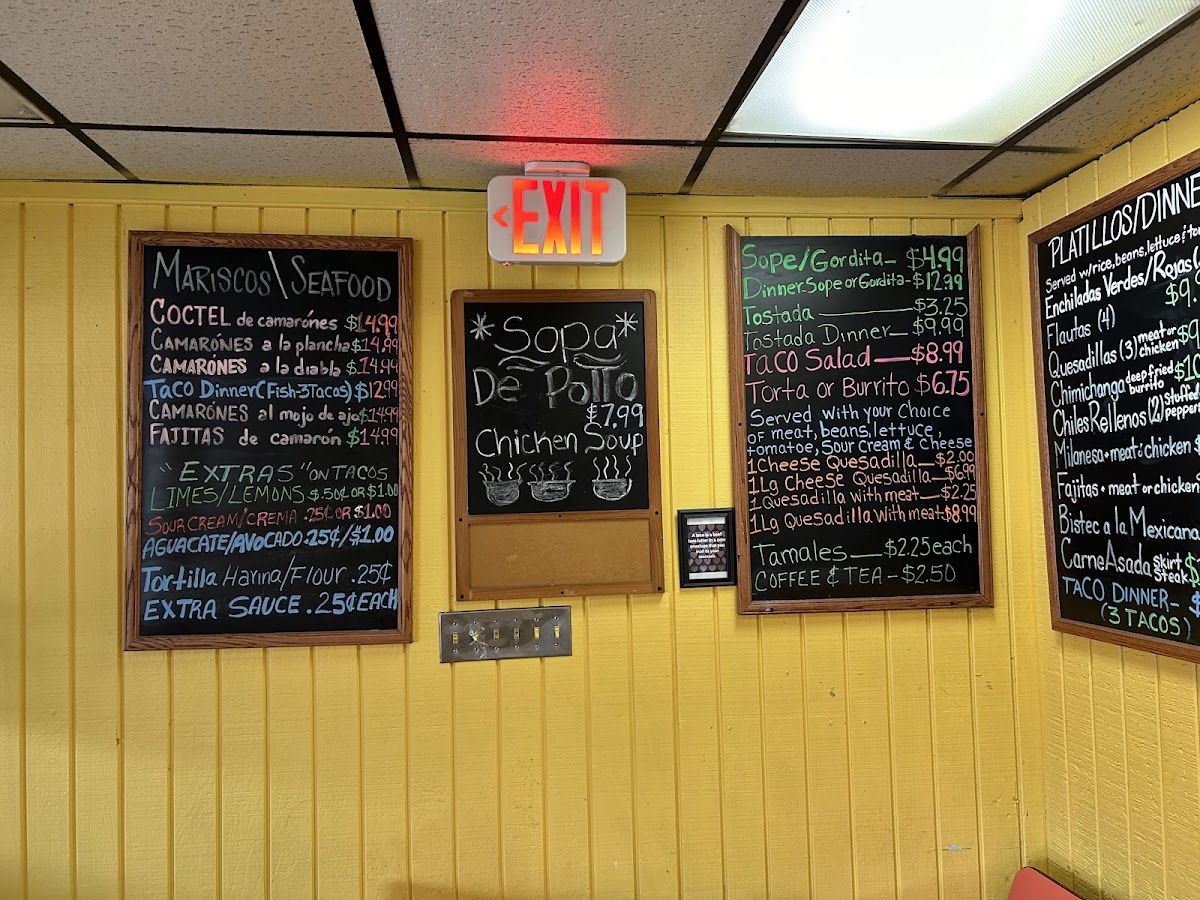 EXIT
MARISCOS\SEAFOOD
COCTEL de camarónes $14.99
CAMARÓNES a la plancha $14.99
CAMARÓNES a la diabla $14.99
TACO Dinner (Fish-3Tacos) $12.99
CAMARÓNES al mojo de ajo $14.99
FAJITAS de camarón $14.99
"EXTRAS" ON TACOS
LIMES/LEMONS $.50¢ OR $1.00
SOUR CREAM/CREMA .25¢ OR $1.00
AGUACATE/AVOCADO .25¢/$1.00
Tortilla Harina/Flour .25¢
EXTRA SAUCE .25¢ EACH
*Sopa*
De Pollo
$7.99
Chicken Soup
A taco is a beef
love letter in a corn
envelope that you
mail to your
stomach.
Sope/Gordita- $4.99
Dinner Sope or Gordita- $12.99
Tostada $3.25
Tostada Dinner $9.99
TACO Salad $8.99
Torta or Burrito $6.75
Served with your choice
of meat, beans, lettuce,
tomatoe, Sour Cream & Cheese
1 Cheese Quesadilla $2.00
1 Lg Cheese Quesadilla $6.99
1 Quesadilla with meat $2.25
1 Lg Quesadilla with meat $8.99
Tamales $2.25 each
COFFEE & TEA - $2.50
PLATILLOS/DINNE
Served w/rice, beans, lettuce & to
Enchiladas Verdes/Rojas
$9
Flautas (4)
Quesadillas (3) meat or chicken
Chimichanga deep fried burrito $10
Chiles Rellenos (2) stuffed peppe
Milanesa • meat or chicken
Fajitas • meat or chicken
Bistec a la Mexicana
Carne Asada skirt steak $
TACO DINNER- $
(3 TACOS)